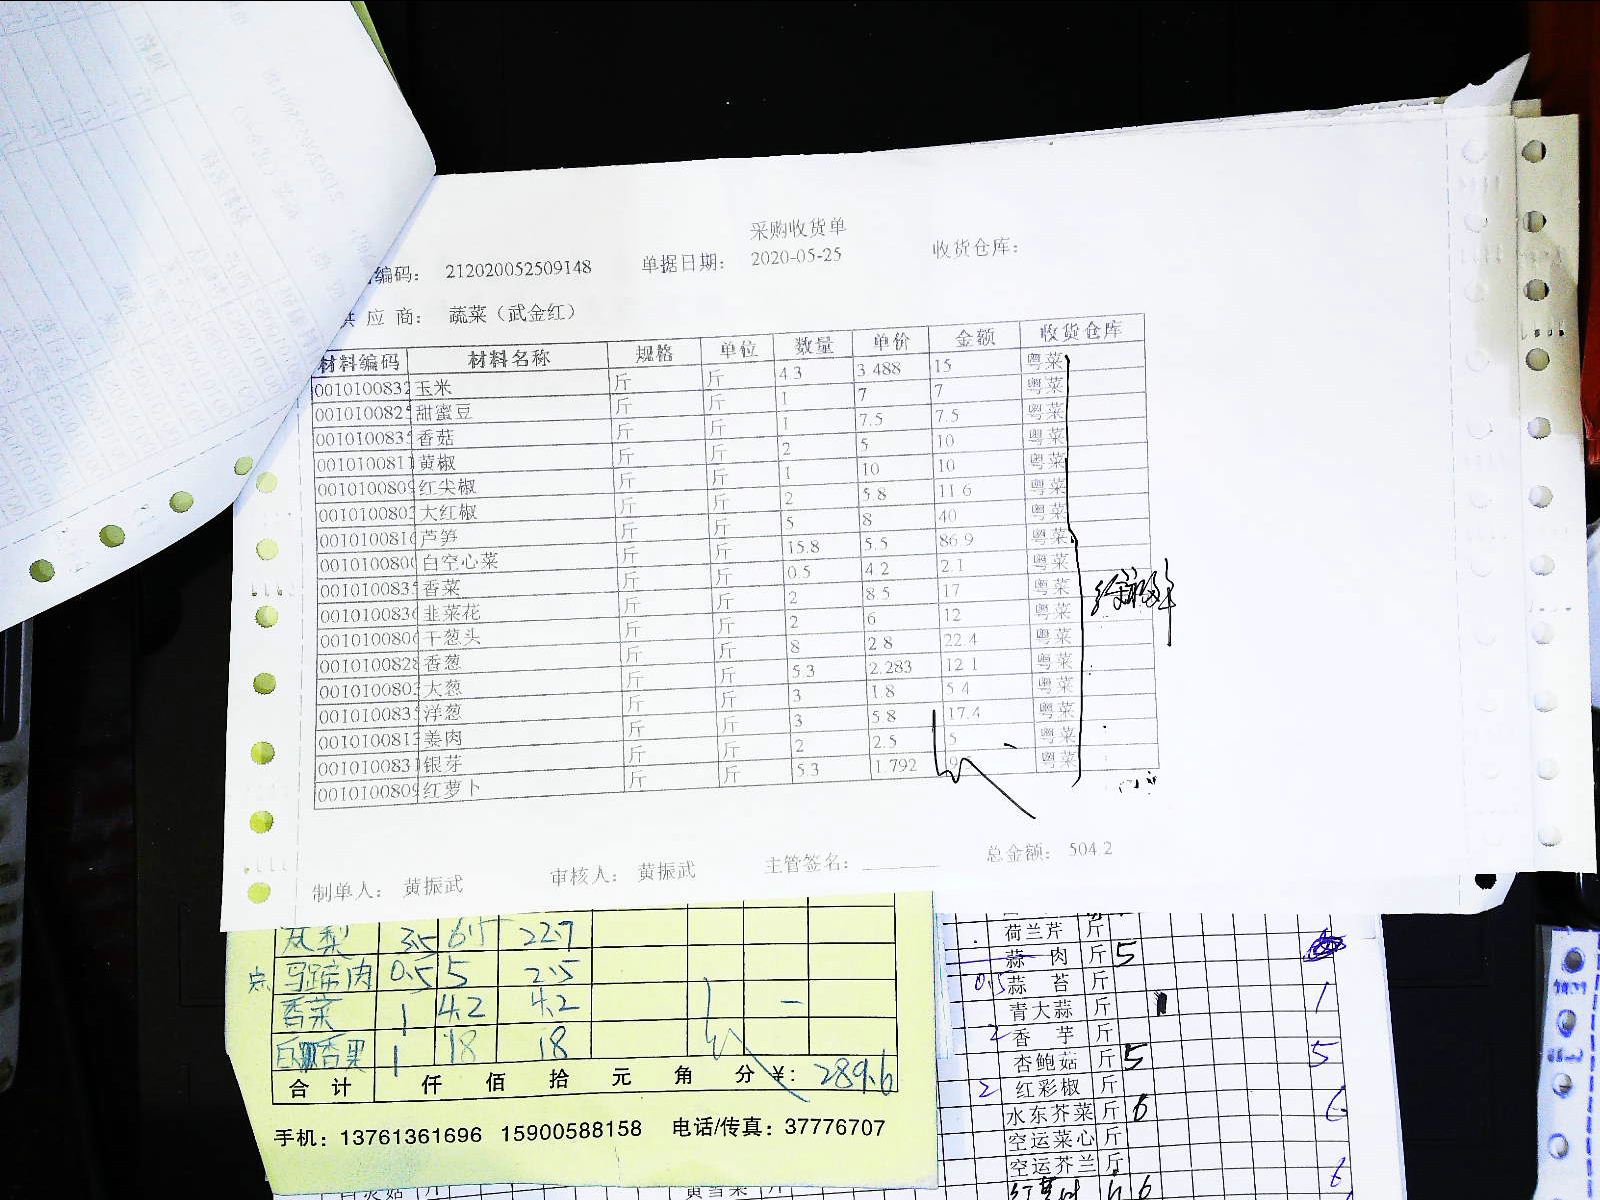 采购收货单
编码： 212020052509148 单据日期： 2020-05-25 收货仓库：
供 应 商： 蔬菜（武金红）
材料编码 材料名称 规格 单位 数量 单价 金额 收货仓库
0010100832 玉米 斤 斤 4.3 3.488 15 粤菜
001010082 甜蜜豆 斤 斤 1 7 7 粤菜
001010083 香菇 斤 斤 1 7.5 7.5 粤菜
001010081 黄椒 斤 斤 2 5 10 粤菜
001010080 红尖椒 斤 斤 1 10 10 粤菜
001010080 大红椒 斤 斤 2 5.8 11.6 粤菜
001010081 芦笋 斤 斤 5 8 40 粤菜
001010080 白空心菜 斤 斤 15.8 5.5 86.9 粤菜
001010083 香菜 斤 斤 0.5 4.2 2.1 粤菜
001010083 韭菜花 斤 斤 2 8.5 17 粤菜
001010080 干葱头 斤 斤 2 6 12 粤菜
001010082 香葱 斤 斤 8 2.8 22.4 粤菜
001010080 大葱 斤 斤 5.3 2.283 12.1 粤菜
001010083 洋葱 斤 斤 3 1.8 5.4 粤菜
001010081 姜肉 斤 斤 3 5.8 17.4 粤菜
001010083 银芽 斤 斤 2 2.5 5 粤菜
001010080 红萝卜 斤 斤 5.3 1.792 9 粤菜
总金额： 504.2
制单人： 黄振武 审核人： 黄振武 主管签名：
凤梨 3.5 6.5 22.7
马蹄肉 0.5 5 2.5
香菜 1 4.2 4.2
百香果 1 18 18
合 计 仟 佰 拾 元 角 分 ¥: 289.6
手机：13761361696 15900588158 电话/传真：37776707
荷兰芹 斤
蒜 肉 斤 5
0.5 蒜 苔 斤
青大蒜 斤 1 1
2 香 芋 斤
杏鲍菇 斤 5 5
2 红彩椒 斤
水东芥菜 斤 6 6
空运菜心 斤
空运芥兰 斤